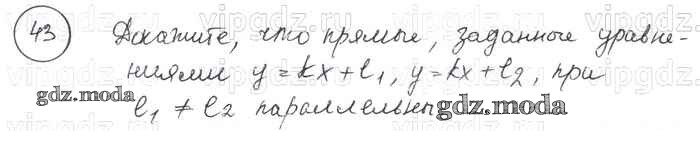 43 Докажите, что прямые, заданные уравне-
ниями y = kx + l₁, y = kx + l₂, при
l₁ ≠ l₂ параллельны
gdz.moda
gdz.moda
vipgdz.ru